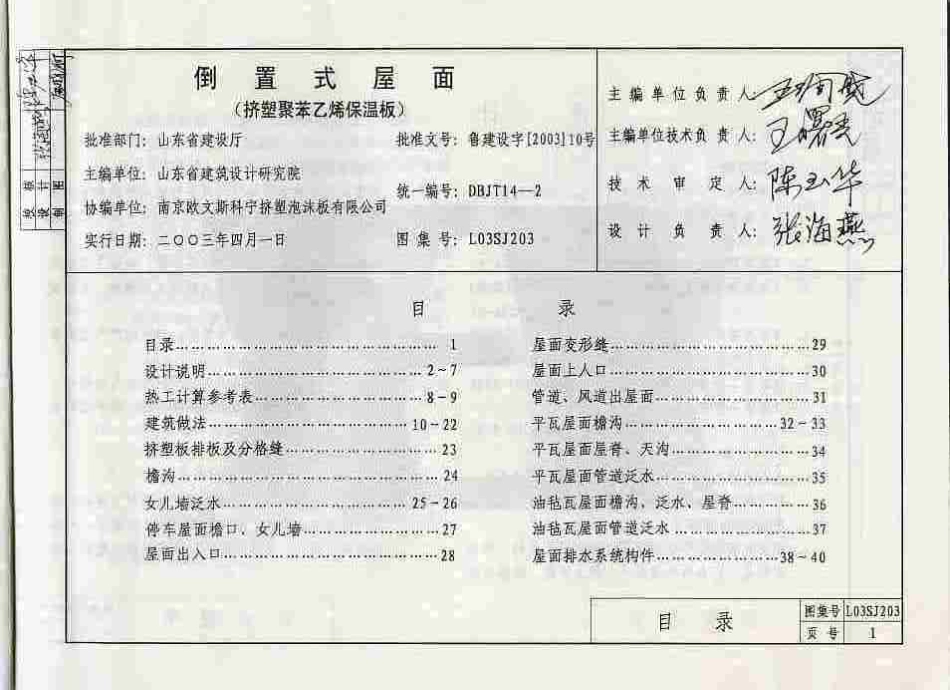 倒置式屋面
（挤塑聚苯乙烯保温板）
批准部门：山东省建设厅
批准文号：鲁建设字[2003]10号
主编单位：山东省建筑设计研究院
统一编号：DBJT14—2
协编单位：南京欧文斯科宁挤塑泡沫板有限公司
实行日期：二〇〇三年四月一日
图集号：L03SJ203
主编单位负责人：
主编单位技术负责人：王曙光
技术审定人：陈玉华
设计负责人：张海燕
校核
设计
制图
目录
目录……………………………1
设计说明……………………………2~7
热工计算参考表……………………………8~9
建筑做法……………………………10~22
挤塑板排板及分格缝……………………………23
檐沟……………………………24
女儿墙泛水……………………………25~26
停车屋面檐口、女儿墙……………………………27
屋面出入口……………………………28
屋面变形缝……………………………29
屋面上人口……………………………30
管道、风道出屋面……………………………31
平瓦屋面檐沟……………………………32~33
平瓦屋面屋脊、天沟……………………………34
平瓦屋面管道泛水……………………………35
油毡瓦屋面檐沟、泛水、屋脊……………………………36
油毡瓦屋面管道泛水……………………………37
屋面排水系统构件……………………………38~40
目录
图集号 L03SJ203
页号 1